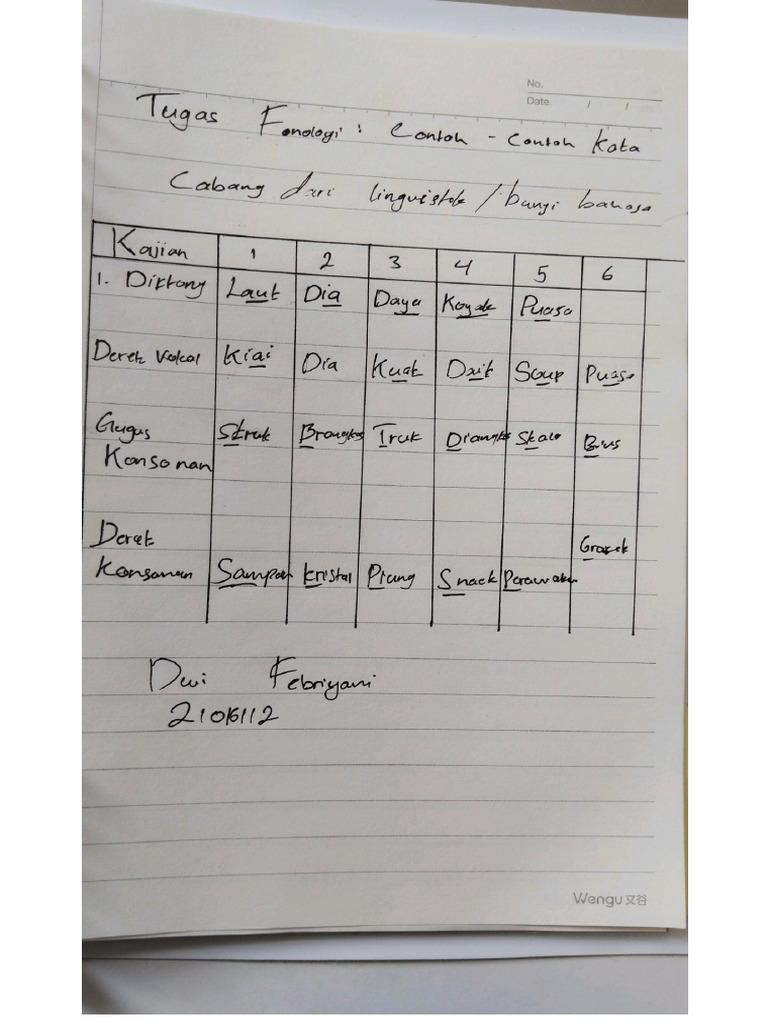 No.
Date. / /
Tugas Fonologi : Contoh - Contoh Kata
Cabang dari linguistik / bunyi bahasa
Kajian 1 2 3 4 5 6
1. Diftong Laut Dia Daya Koyak Puasa
Deret Vokal Kiai Dia Kuat Dait Soup Puasa
Gugus Struk Brangkas Truk Diangkas Skala Bius
Konsonan
Deret Gravek
Konsonan Sampah Kristal Prung Snack Perawakan
Dwi Febriyani
2106112
Wengu 文谷